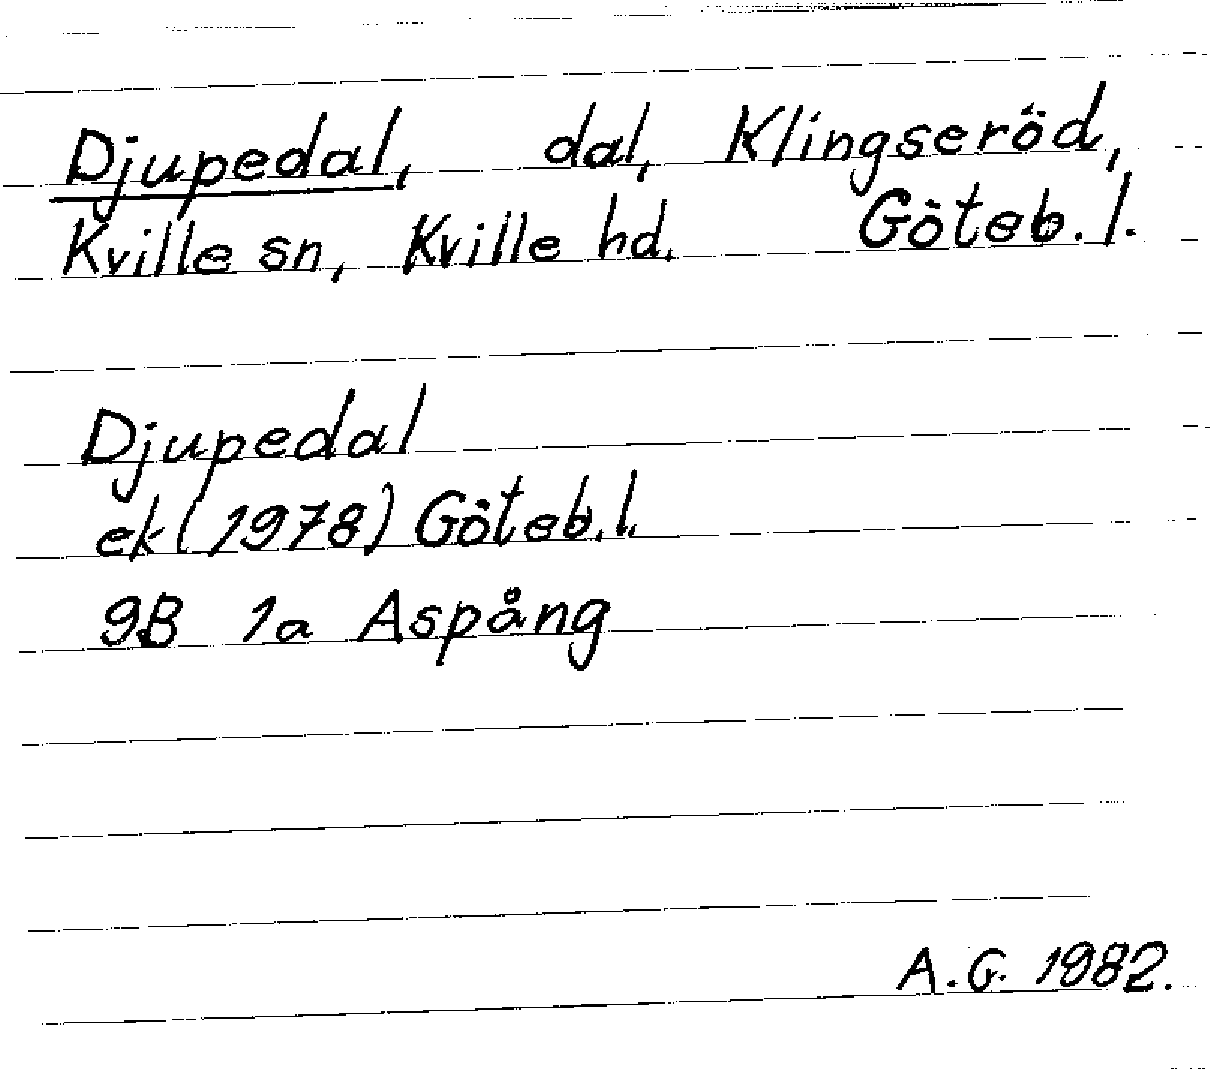 Djupedal, dal, Klingseröd,
Kville sn, Kville hd. Göteb. l.
Djupedal
ek (1978) Göteb. l.
9B 1a Aspång
A. G. 1982.